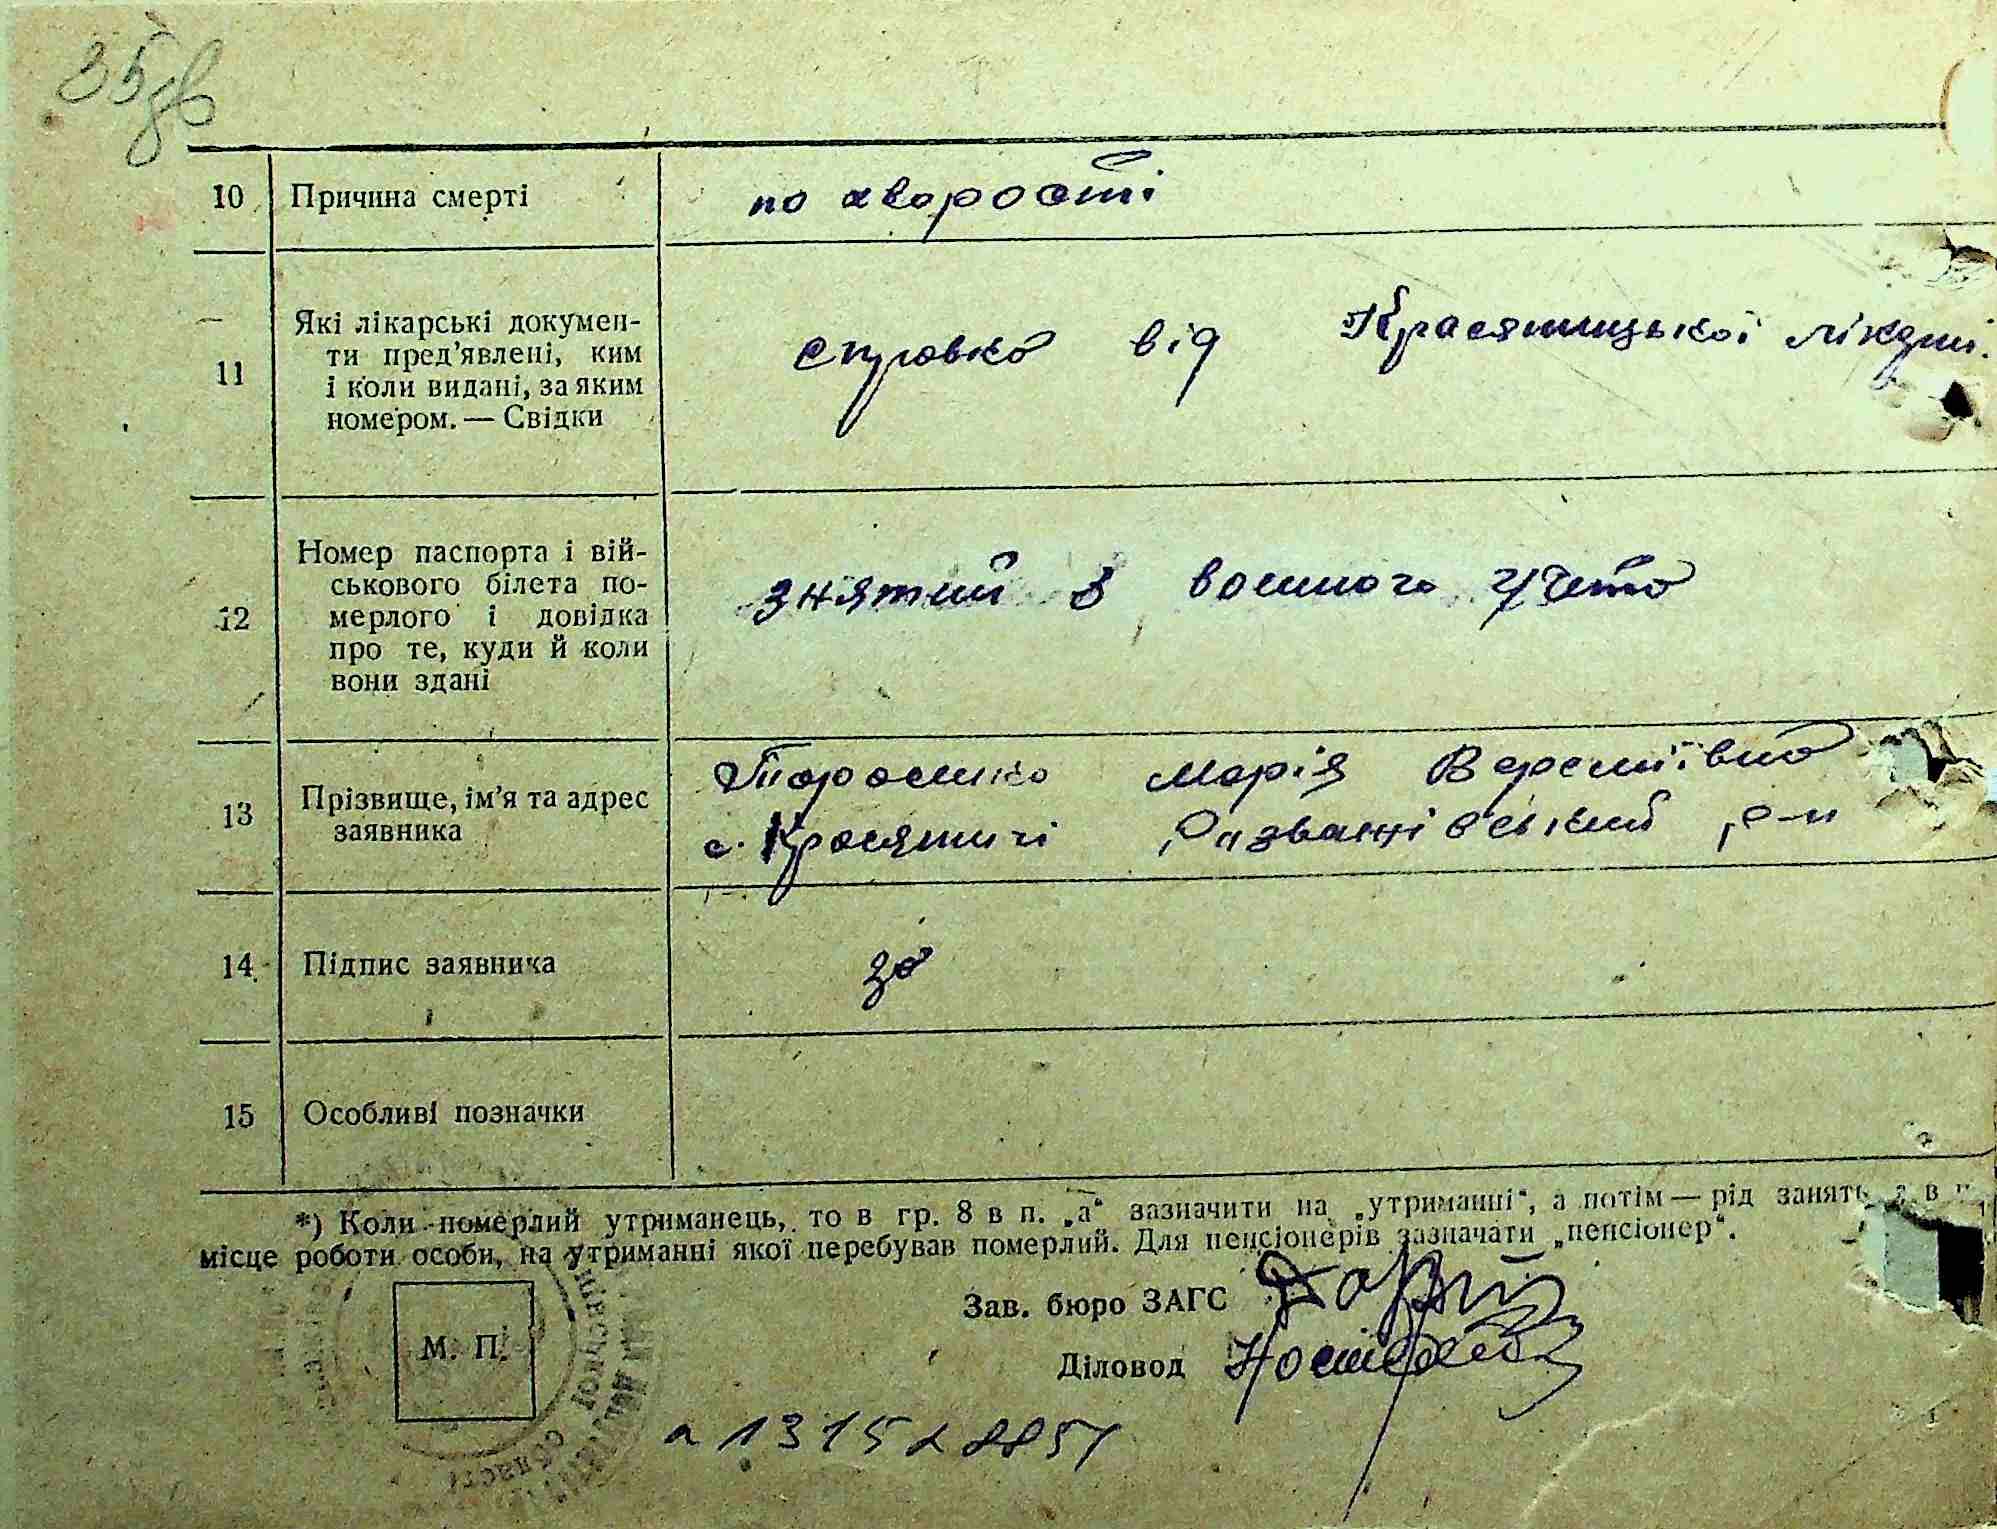 35зв
10 Причина смерті по хворості
11 Які лікарські докумен-
ти пред'явлені, ким
і коли видані, за яким
номером. — Свідки
справка від Красятицької лікарні.
12 Номер паспорта і вій-
ськового білета по-
мерлого і довідка
про те, куди й коли
вони здані
знятий з воєнного учота
13 Прізвище, ім'я та адрес
заявника
Тарасенко Марія Веремїївна
с. Красятичі Розважівський р-н
14 Підпис заявника за
15 Особливі позначки
*) Коли померлий утриманець, то в гр. 8 в п. „а“ зазначити на „утриманні“, а потім — рід занять, а в п.
місце роботи особи, на утриманні якої перебував померлий. Для пенсіонерів зазначати „пенсіонер“.
Зав. бюро ЗАГС
М. П.
Діловод
области